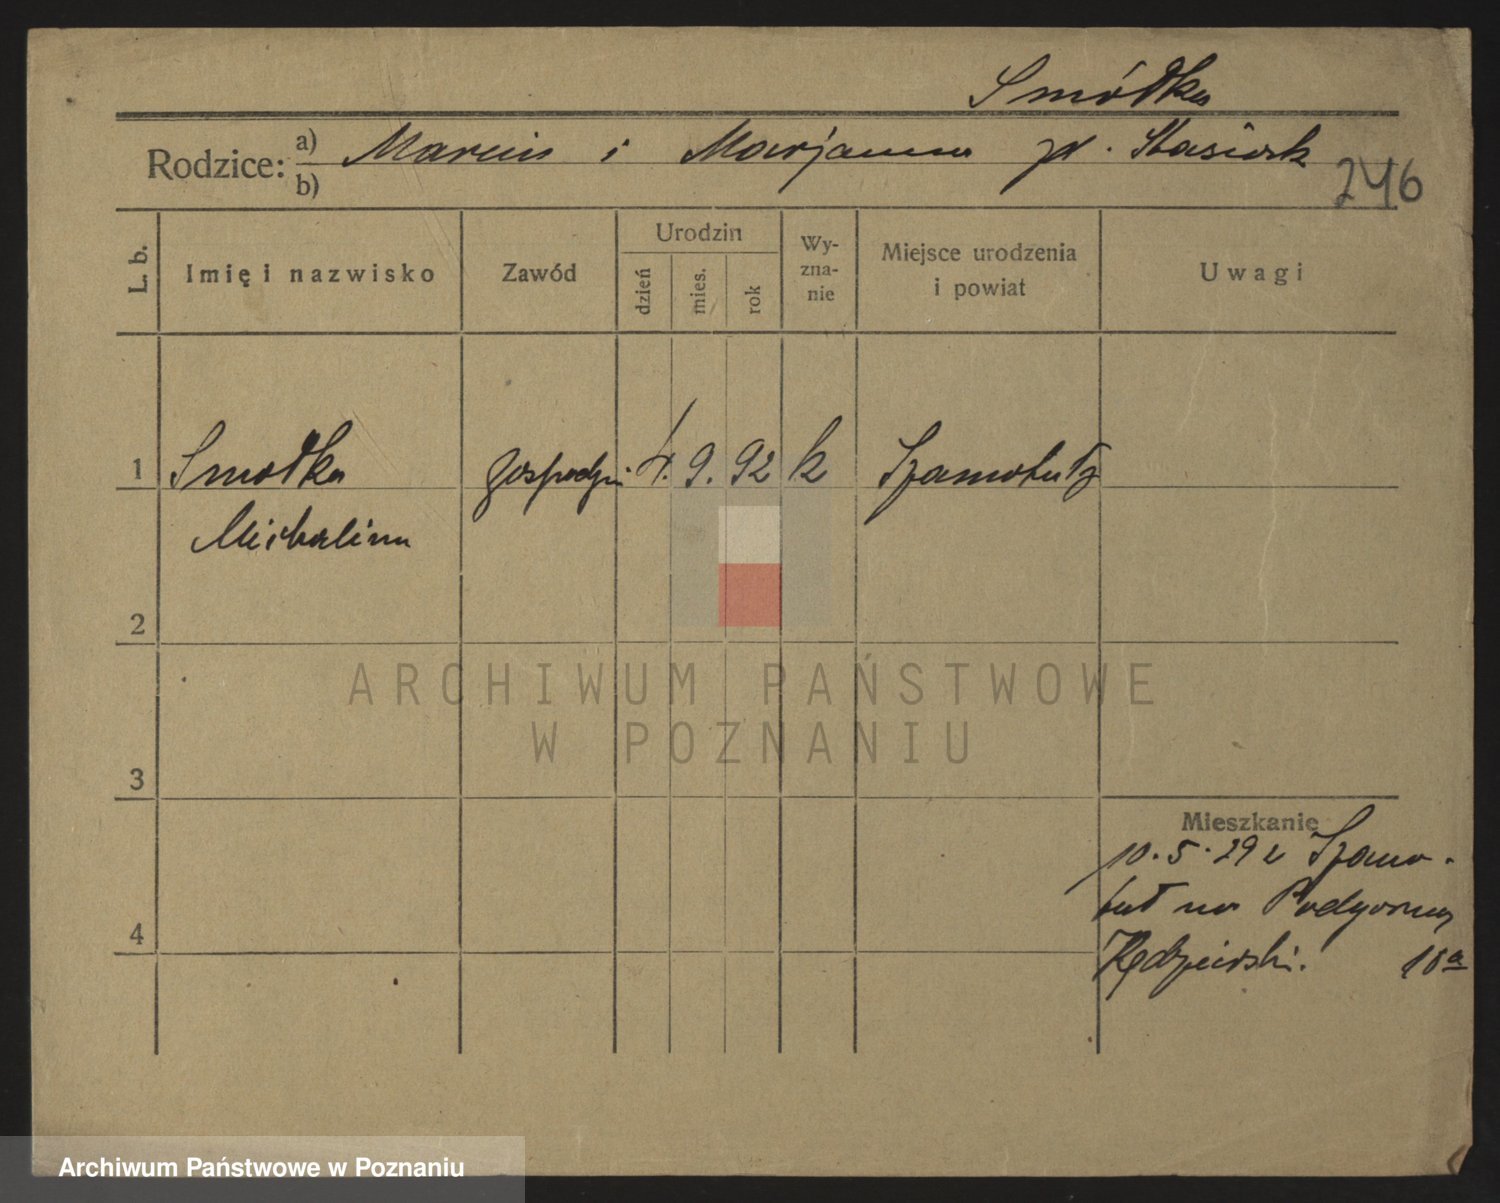 Smółka
Rodzice: a) Marcin i Marjanna zd. Stasiak
b)
246
L. b.
Imię i nazwisko
Zawód
Urodzin
dzień
mies.
rok
Wy-
zna-
nie
Miejsce urodzenia
i powiat
Uwagi
1 Smółka gospodyni 4. 9. 92 k Szamotuły
Michalina
2
ARCHIWUM PAŃSTWOWE
W POZNANIU
3
Mieszkanie
10.5.29 z Szamo-
tuł na Podgórną
10a
4
Archiwum Państwowe w Poznaniu